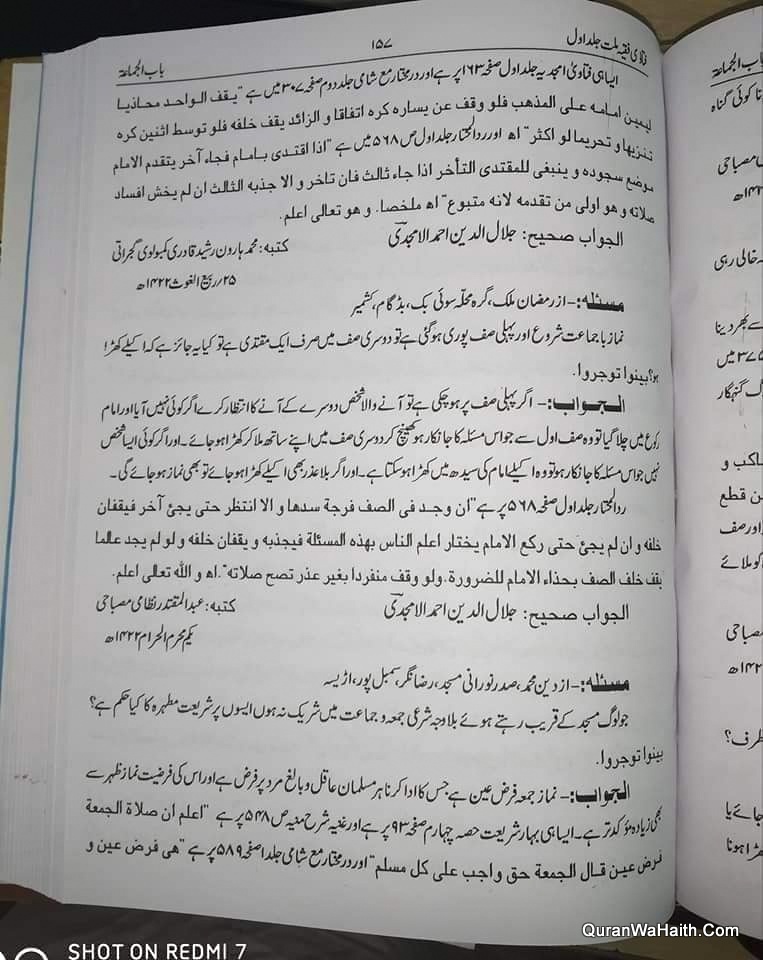 فتاوی فقیہ ملت جلد اول ۱۵۷ باب الجماعۃ
ایسا ہی فتاویٰ امجدیہ جلد اول صفحہ ۱۶۳ پر ہے اور در مختار مع شامی جلد دوم صفحہ ۳۰۷ میں ہے "یقف الواحد محاذیا
لیمین امامہ علی المذھب فلو وقف عن یسارہ کرہ اتفاقا و الزائد یقف خلفہ فلو توسط اثنین کرہ
تنزیھا و تحریما لو اکثر" اھ اور ردالمحتار جلد اول ص ۵۶۸ میں ہے "اذا اقتدی بامام فجاء آخر یتقدم الامام
موضع سجودہ و ینبغی للمقتدی التأخر اذا جاء ثالث فان تاخر و الا جذبہ الثالث ان لم یخش افساد
صلاتہ و ھو اولی من تقدمہ لانہ متبوع" اھ ملخصا. و ھو تعالی اعلم.
الجواب صحیح: جلال الدین احمد الامجدی
کتبہ: محمد ہارون رشید قادری کمبولوی گجراتی
۲۵/ربیع الغوث ۱۴۲۲ھ
مسئلہ:- از رمضان ملک، گرہ محلہ سوئی بک، بڈگام، کشمیر
نماز با جماعت شروع اور پہلی صف پوری ہوگئی ہے تو دوسری صف میں صرف ایک مقتدی ہے تو کیا یہ جائز ہے کہ اکیلے کھڑا
ہو؟ بینوا توجروا.
الجواب:- اگر پہلی صف پر ہو چکی ہے تو آنے والا شخص دوسرے کے آنے کا انتظار کرے اگر کوئی نہیں آیا اور امام
رکوع میں چلا گیا تو وہ صف اول سے جو اس مسئلہ کا جانکار ہو کھینچ کر دوسری صف میں اپنے ساتھ ملا کر کھڑا ہو جائے۔ اور اگر کوئی ایسا شخص
نہیں جو اس مسئلہ کا جانکار ہو تو وہ اکیلے امام کی سیدھ میں کھڑا ہو سکتا ہے۔ اور اگر بلا عذر بھی اکیلے کھڑا ہو جائے تو بھی نماز ہو جائے گی۔
ردالمحتار جلد اول صفحہ ۵۶۸ پر ہے "ان وجد فی الصف فرجة سدھا و الا انتظر حتی یجئ آخر فیقفان
خلفہ و ان لم یجئ حتی رکع الامام یختار اعلم الناس بھذہ المسئلة فیجذبہ و یقفان خلفہ و لو لم یجد عالما
یقف خلف الصف بحذاء الامام للضرورة. ولو وقف منفردا بغیر عذر تصح صلاتہ". اھ و اللہ تعالی اعلم.
الجواب صحیح: جلال الدین احمد الامجدی
کتبہ: عبد المقتدر نظامی مصباحی
یکم محرم الحرام ۱۴۲۲ھ
مسئلہ:- از دین محمد، صدر نورانی مسجد، رضا نگر، سمبل پور، اڑیسہ
جو لوگ مسجد کے قریب رہتے ہوئے بلا وجہ شرعی جمعہ و جماعت میں شریک نہ ہوں ایسوں پر شریعت مطہرہ کا کیا حکم ہے؟
بینوا توجروا.
الجواب:- نماز جمعہ فرض عین ہے جس کا ادا کرنا ہر مسلمان عاقل و بالغ مرد پر فرض ہے اور اس کی فرضیت نماز ظہر سے
بھی زیادہ مؤکد تر ہے۔ ایسا ہی بہار شریعت حصہ چہارم صفحہ ۹۳ پر ہے اور غنیہ شرح منیہ ص ۵۴۸ پر ہے "اعلم ان صلاة الجمعة
فرض عین قال الجمعة حق واجب علی کل مسلم" اور در مختار مع شامی جلد ۱ صفحہ ۵۸۹ پر ہے "ھی فرض عین و
باب الجماعۃ
کوئی گناہ
مصباحی
خالی رہی
بھر دینا
گنہگار
و
قطع
اور صف
کو ملائے
مصباحی
طرف؟
جائے یا
کھڑا ہونا
SHOT ON REDMI 7
QuranWaHaith.Com